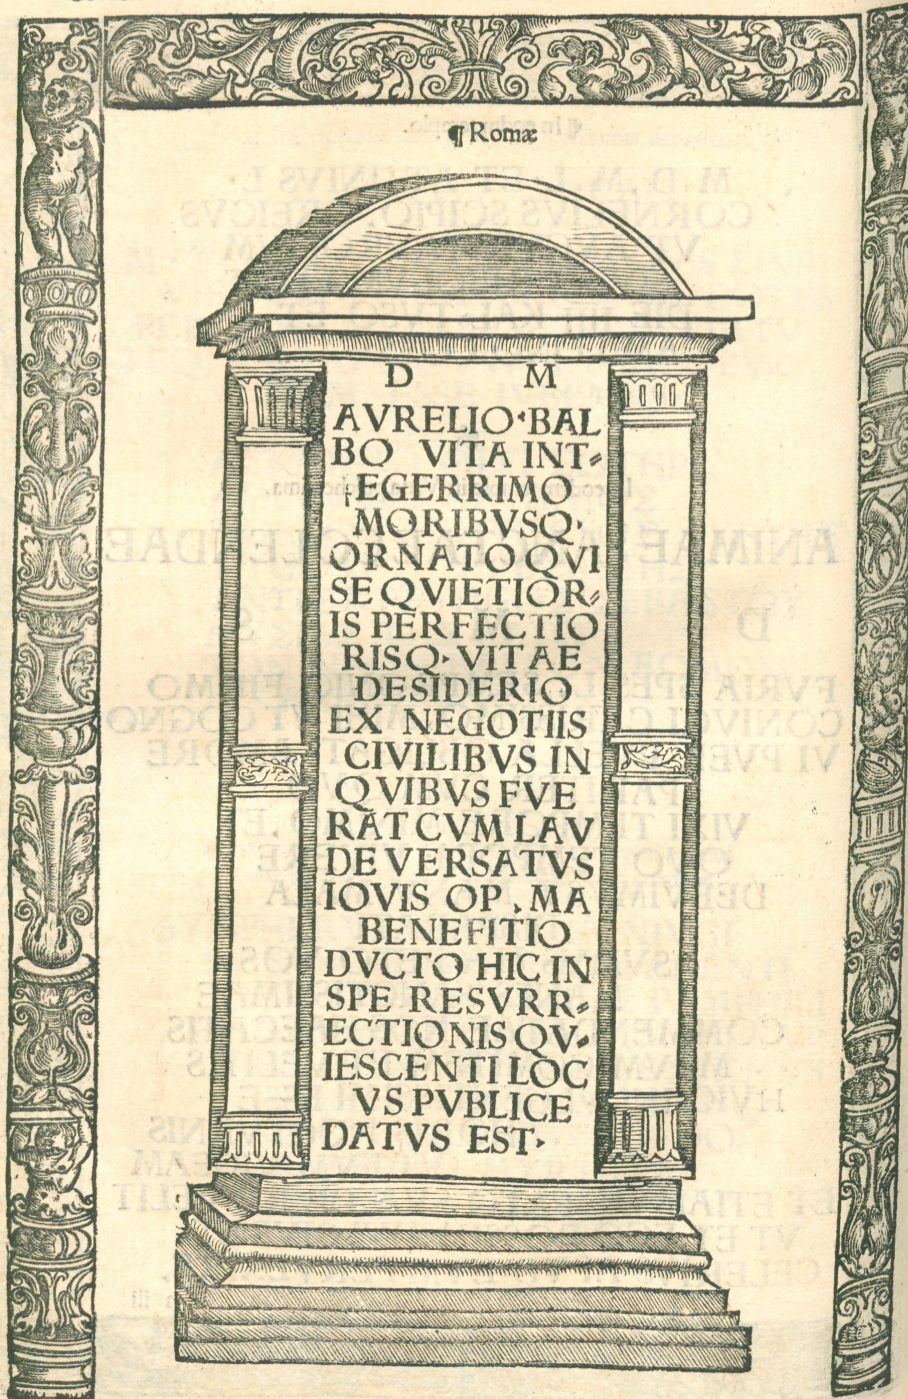 ¶ Romæ
D M
AVRELIO·BAL
BO VITA INT⸗
EGERRIMO
MORIBVSQ·
ORNATO QVI
SE QVIETIOR⸗
IS PERFECTIO
RISQ· VITAE
DESIDERIO
EX NEGOTIIS
CIVILIBVS IN
QVIBVS FVE
RÃT CVM LAV
DE VERSATVS
IOVIS OP. MA
BENEFITIO
DVCTO HIC IN
SPE RESVRR⸗
ECTIONIS QV⸗
IESCENTI LOC
VS PVBLICE
DATVS EST·